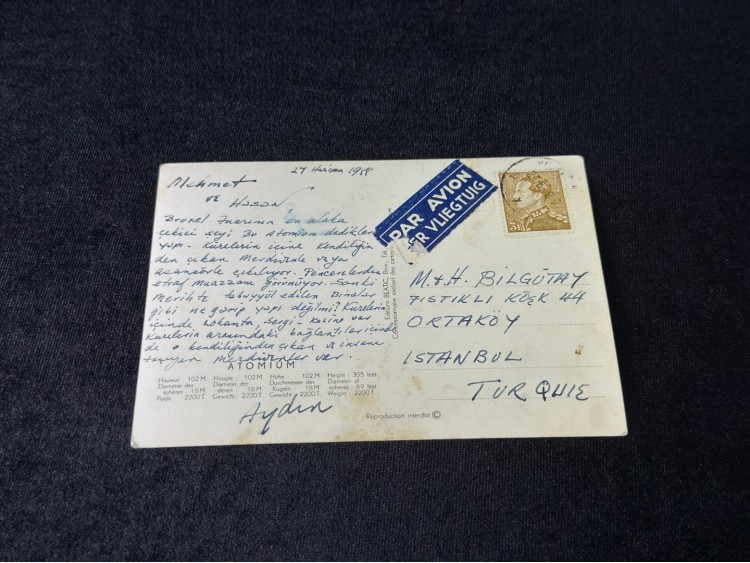 27 Haziran 1958
Mehmet
ve Hasan
Brüksel Fuarının en alaka
çekici şeyi Bu Atomium dedikleri
yapı - Kürelerin içine kendiliğin
den çıkan Merdivenle veya
asansörle çıkılıyor. Pencerelerden
etraf muazzam görünüyor. Sanki
Merihte tahayyül edilen Binalar
gibi ne garip yapı değilmi? Kürelerin
içinde Lokanta, sergi - var
Kürelerin arasındaki bağlantıların içinde
de kendiliğinden çıkan ve insanı
taşıyan Merdivenler var.
Aydın
ATOMIUM
Hauteur : 102 M.
Diamètre des
sphères : 18 M.
Poids 2200 T.
Hoogte : 102 M.
Diameter der
sferen : 18 M.
Gewicht : 2200 T.
Höhe : 102 M.
Durchmesser der
Kugeln 18 M.
Gewicht : 2200 T.
Height : 335 feet
Diameter of
spheres : 59 feet
Weight : 2200 T.
Reproduction interdite ©
PAR AVION
PER VLIEGTUIG
M + H. BILGÜTAY
FISTIKLI KÖŞK 44
ORTAKÖY
ISTANBUL
TURQUIE